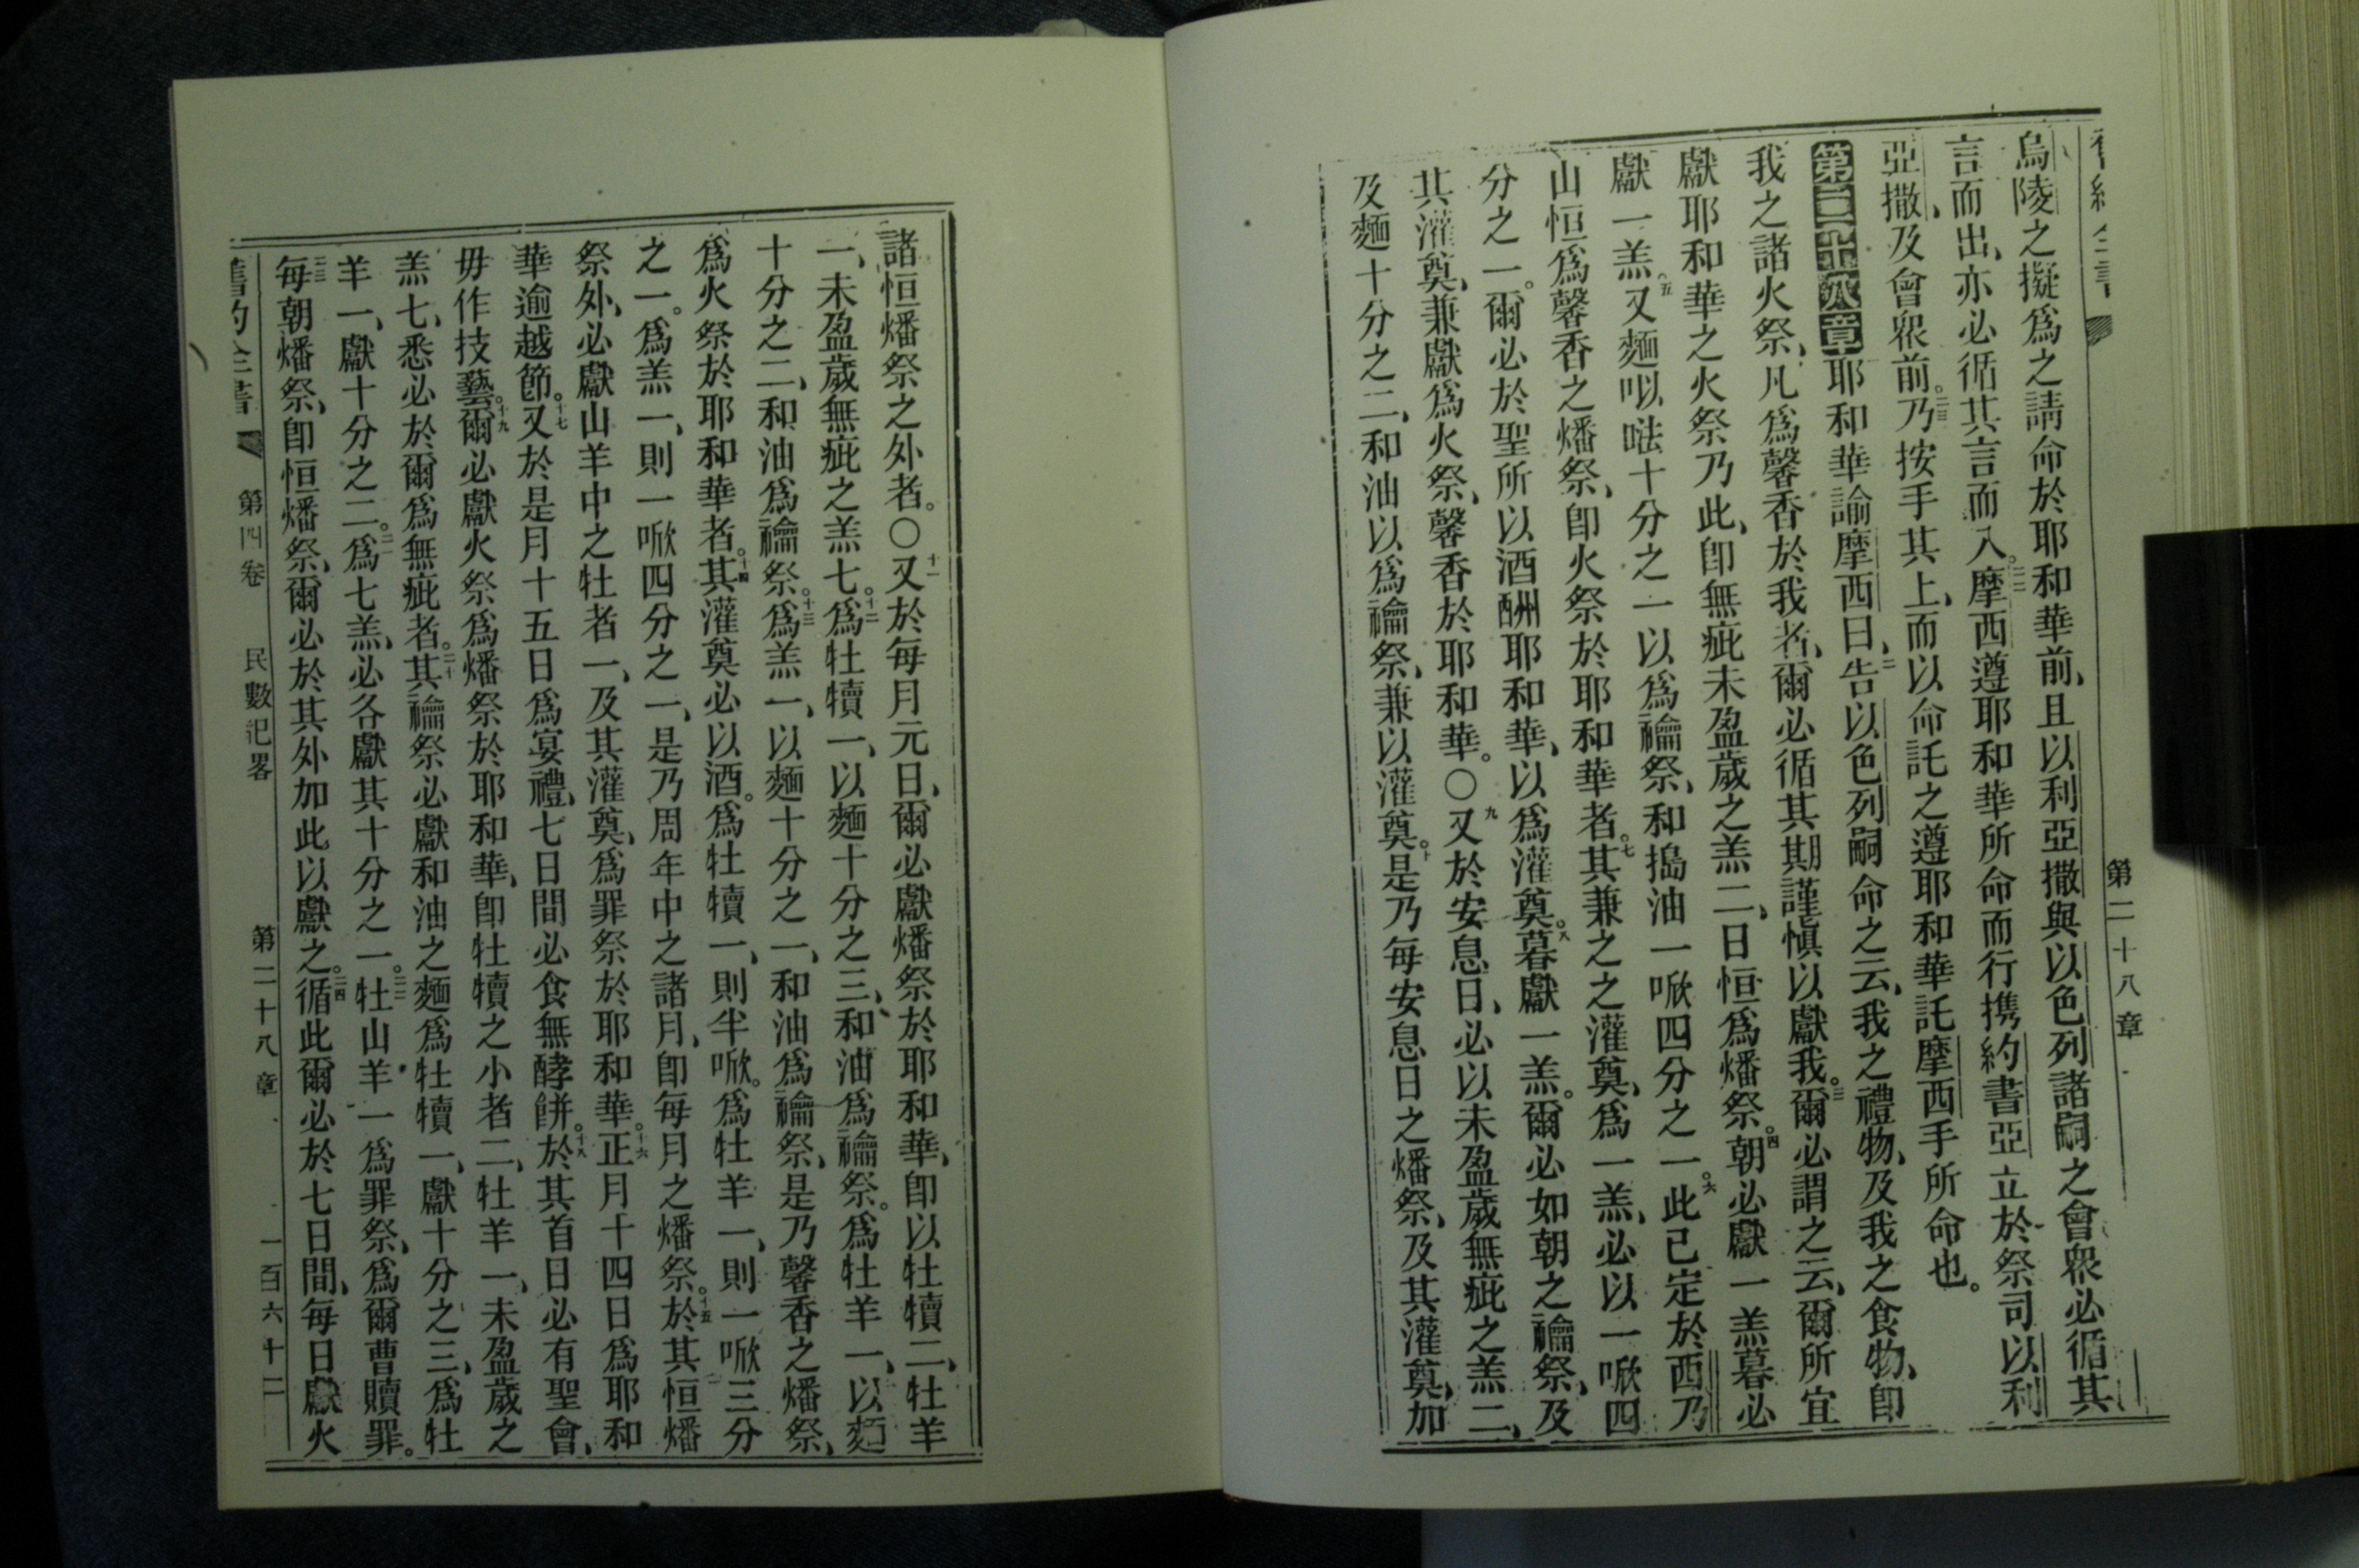 第二十八章
烏陵之擬爲之請命於耶和華前、且以利亞撒與以色列諸嗣之會衆必循其
言而出、亦必循其言而入。二二摩西遵耶和華所命而行携約書亞立於祭司以利
亞撒、及會衆前。二三乃按手其上、而以命託之遵耶和華託摩西手所命也。
第二十八章耶和華諭摩西曰、二告以色列嗣命之云、我之禮物、及我之食物、卽
我之諸火祭、凡爲馨香於我者、爾必循其期謹愼以獻我。三爾必謂之云、爾所宜
獻耶和華之火祭乃此、卽無疵未盈歲之羔二、日恒爲燔祭。四朝必獻一羔暮必
獻一羔。五又麵㕥㗓十分之一以爲禴祭、和搗油一㗔四分之一。六此已定於西乃
山恒爲馨香之燔祭、卽火祭於耶和華者。七其兼之之灌奠、爲一羔、必以一㗔四
分之一。爾必於聖所以酒酬耶和華、以爲灌奠。八暮獻一羔。爾必如朝之禴祭、及
其灌奠、兼獻爲火祭、馨香於耶和華。〇九又於安息日、必以未盈歲無疵之羔二、
及麵十分之二、和油以爲禴祭、兼以灌奠。十是乃每安息日之燔祭、及其灌奠、加
諸恒燔祭之外者。〇十一又於每月元日、爾必獻燔祭於耶和華、卽以牡犢二、牡羊
一、未盈歲無疵之羔七。十二爲牡犢一、以麵十分之三、和油爲禴祭。爲牡羊一、以麵
十分之二、和油爲禴祭。十三爲羔一、以麵十分之一、和油爲禴祭、是乃馨香之燔祭、
爲火祭於耶和華者。十四其灌奠必以酒。爲牡犢一、則半㗔。爲牡羊一、則一㗔三分
之一。爲羔一、則一㗔四分之一、是乃周年中之諸月、卽每月之燔祭。十五於其恒燔
祭外、必獻山羊中之牡者一、及其灌奠、爲罪祭於耶和華。十六正月十四日爲耶和
華逾越節。十七又於是月十五日爲宴禮、七日間必食無酵餅。十八於其首日必有聖會、
毋作技藝。十九爾必獻火祭爲燔祭於耶和華、卽牡犢之小者二、牡羊一、未盈歲之
羔七、悉必於爾爲無疵者。二十其禴祭必獻和油之麵爲牡犢一、獻十分之三、爲牡
羊一、獻十分之二。二一爲七羔、必各獻其十分之一。二二牡山羊一爲罪祭、爲爾曹贖罪。
二三每朝燔祭、卽恒燔祭、爾必於其外加此以獻之。二四循此爾必於七日間、每日獻火
舊約全書 第四卷 民數記畧 第二十八章 一百六十二